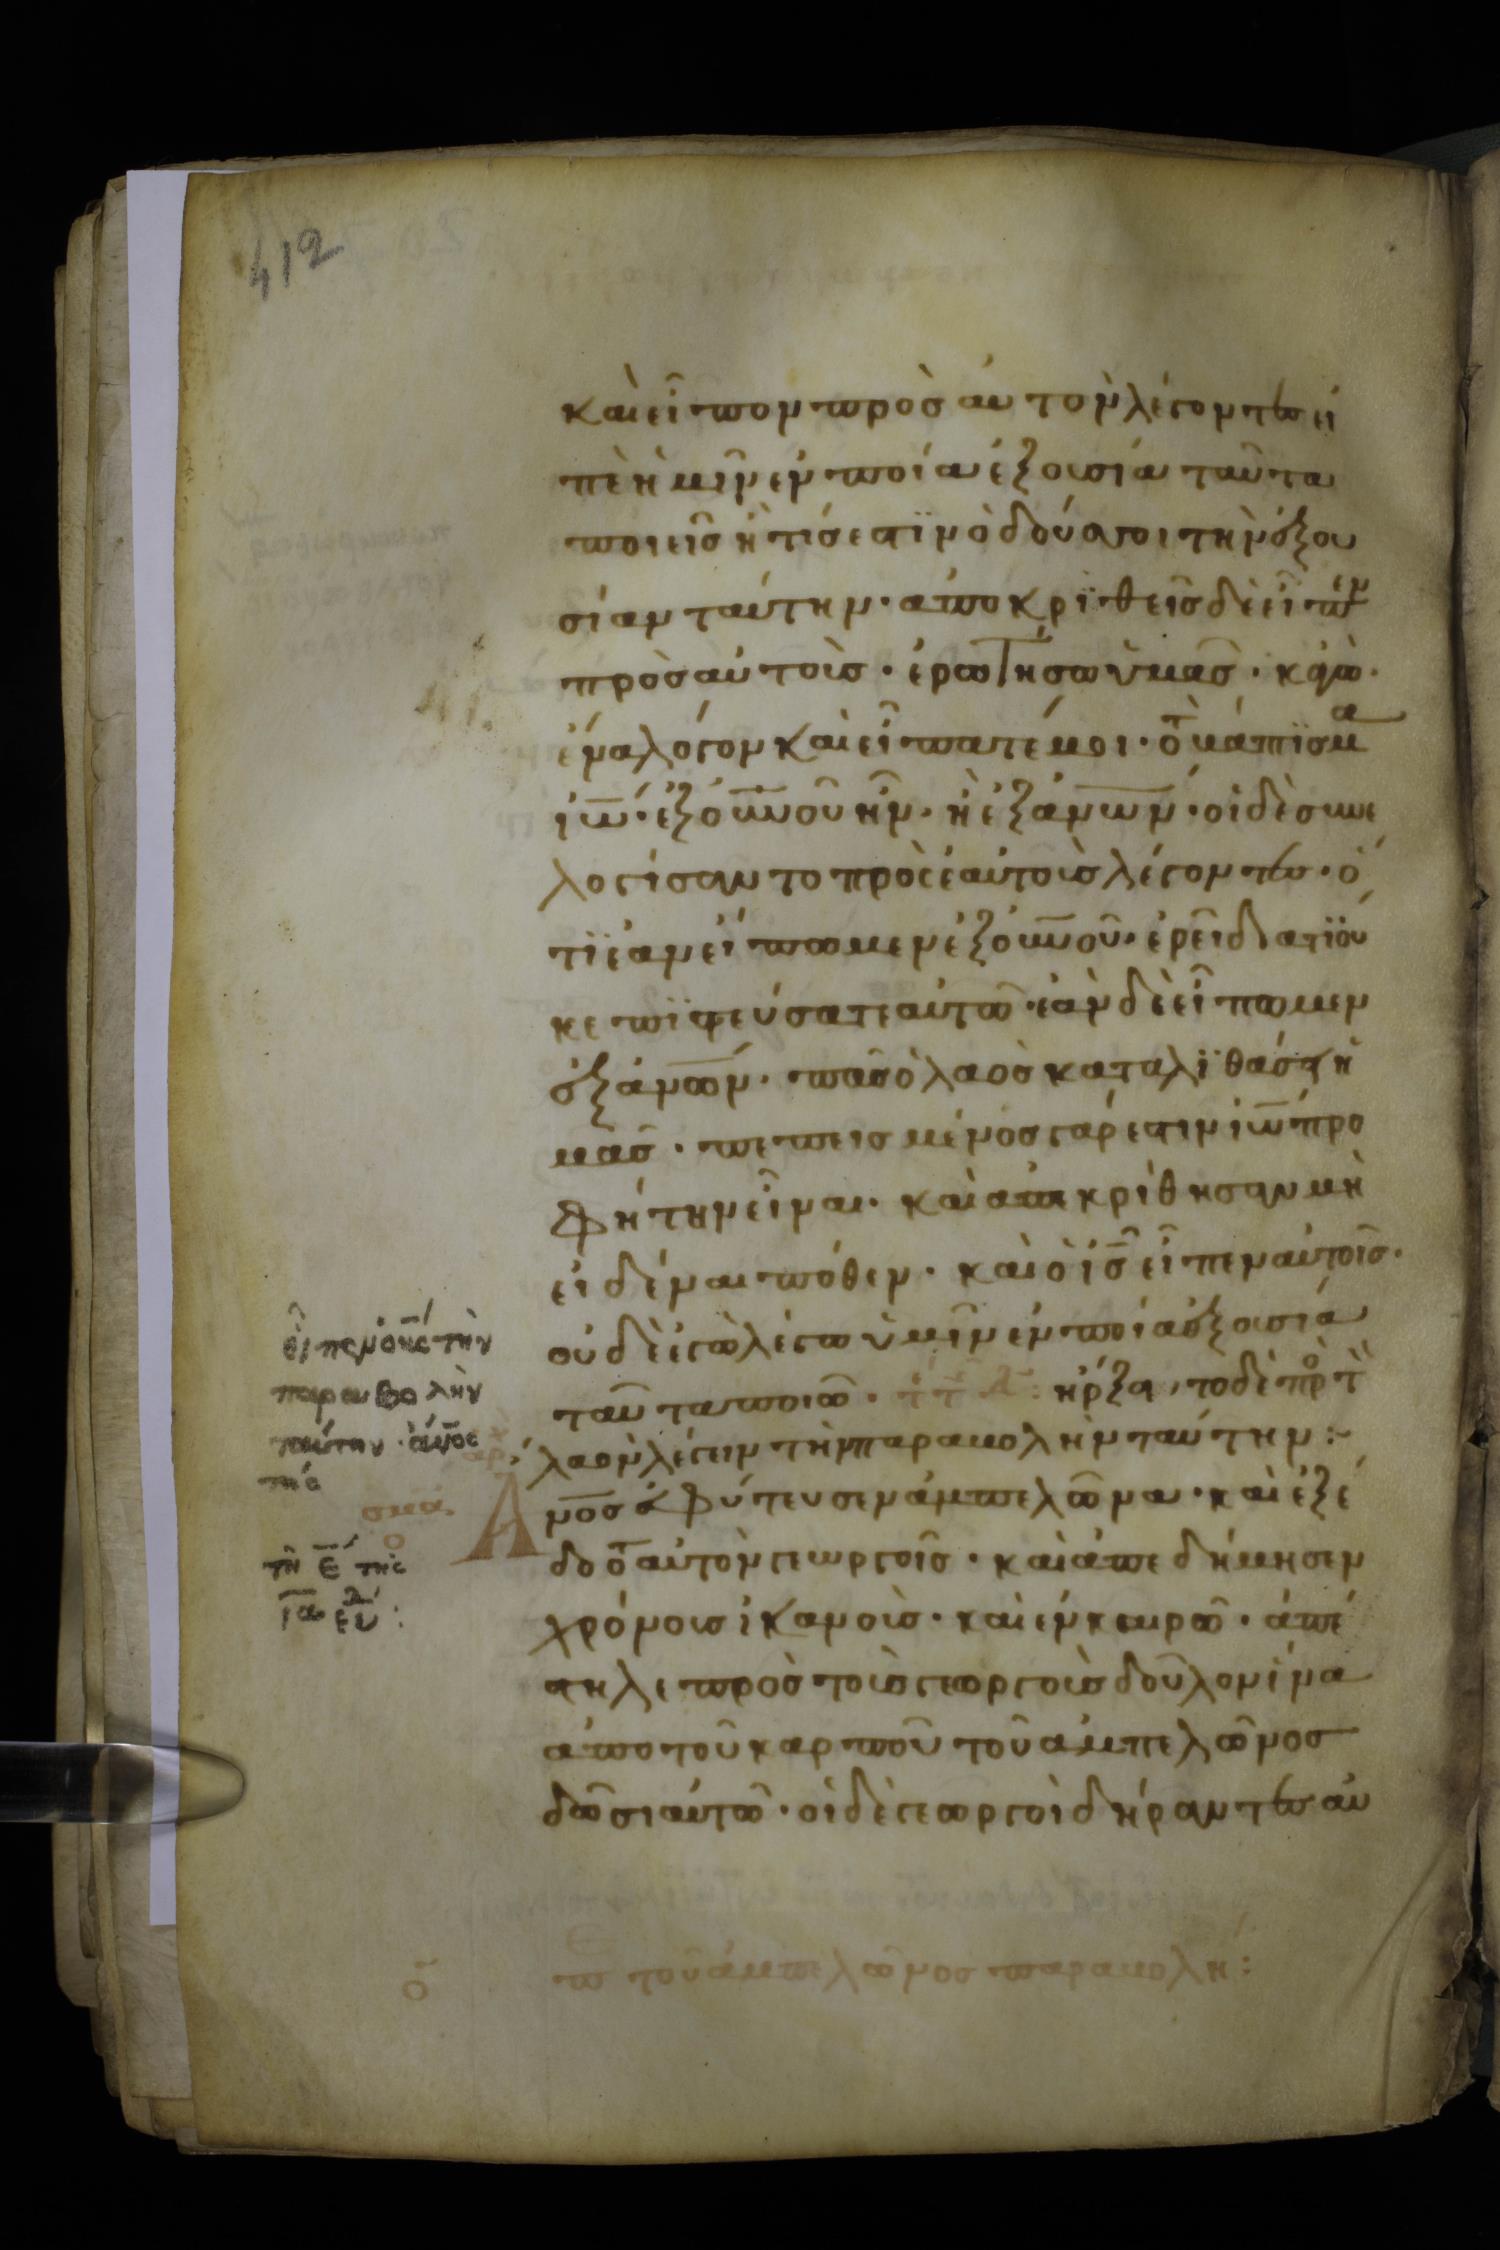 412
καὶ εἶπον πρὸς αὐτὸν λέγοντες εἰ
πὲ ἡμῖν ἐν ποία ἐξουσία ταῦτα
ποιεῖς ἢ τίς ἐστϊν ὁ δούς σοι τὴν ἐξου
σίαν ταύτην · ἀποκρϊθεῖς δὲ εἶπεν
πρὸς αὐτοὺς · ἐρωτήσω ὑμᾶς · κἀγὼ ·
ἕνα λόγον καὶ εἴπατέ μοι · τὸ βάπτϊσμα
ἰω · ἐξ οὐνοῦ ἦν · ἢ ἐξ ἀνων · οἱ δὲ συνε
λογίσαντο πρὸς ἑαυτοὺς λέγοντες · ὅ
τϊ ἐὰν εἴπωμεν ἐξ οὐνοῦ · ἐρεῖ διατϊ οὐ
κ ἐπϊστεύσατε αὐτῶ · ἐὰν δὲ εἴπωμεν
ἐξ ἀνων · πᾶς ὁ λαὸς καταλϊθάσει ἡ
μᾶς · πεπεισμένος γάρ ἐστιν ἰω προ
φήτην εἶναι · καὶ ἀπεκρίθησαν μὴ
εἰδέναι πόθεν · καὶ ὁ ις εἶπεν αὐτοῖς ·
οὐδὲ ἐγὼ λέγω ὑμῖν ἐν ποία ἐξουσία
ταῦτα ποιῶ · ἤρξατο δὲ πρὸς τὸν
λαὸν λέγειν τὴν παραβολὴν ταύτην :
Ανος ἐφύτευσεν ἀμπελῶνα · καὶ ἐξέ
δοτο αὐτὸν γεωργοῖς · καὶ ἀπεδήμησεν
χρόνους ἱκανοὺς · καὶ ἐν καιρῶ · ἀπέ
στειλε πρὸς τοὺς γεωργοὺς δοῦλον ἵνα
ἀπὸ τοῦ καρποῦ τοῦ ἀμπελῶνος
δῶσι αὐτῶ · οἱ δὲ γεωργοὶ δήραντες αὐ
εἶπεν ὁ κς τὴν
παραβολὴν
ταύτην · ἀνος
τῆ ε τῆς
ια εβ :
σμα
ο
οϊ
π τοῦ ἀμπελῶνος παραβολή :